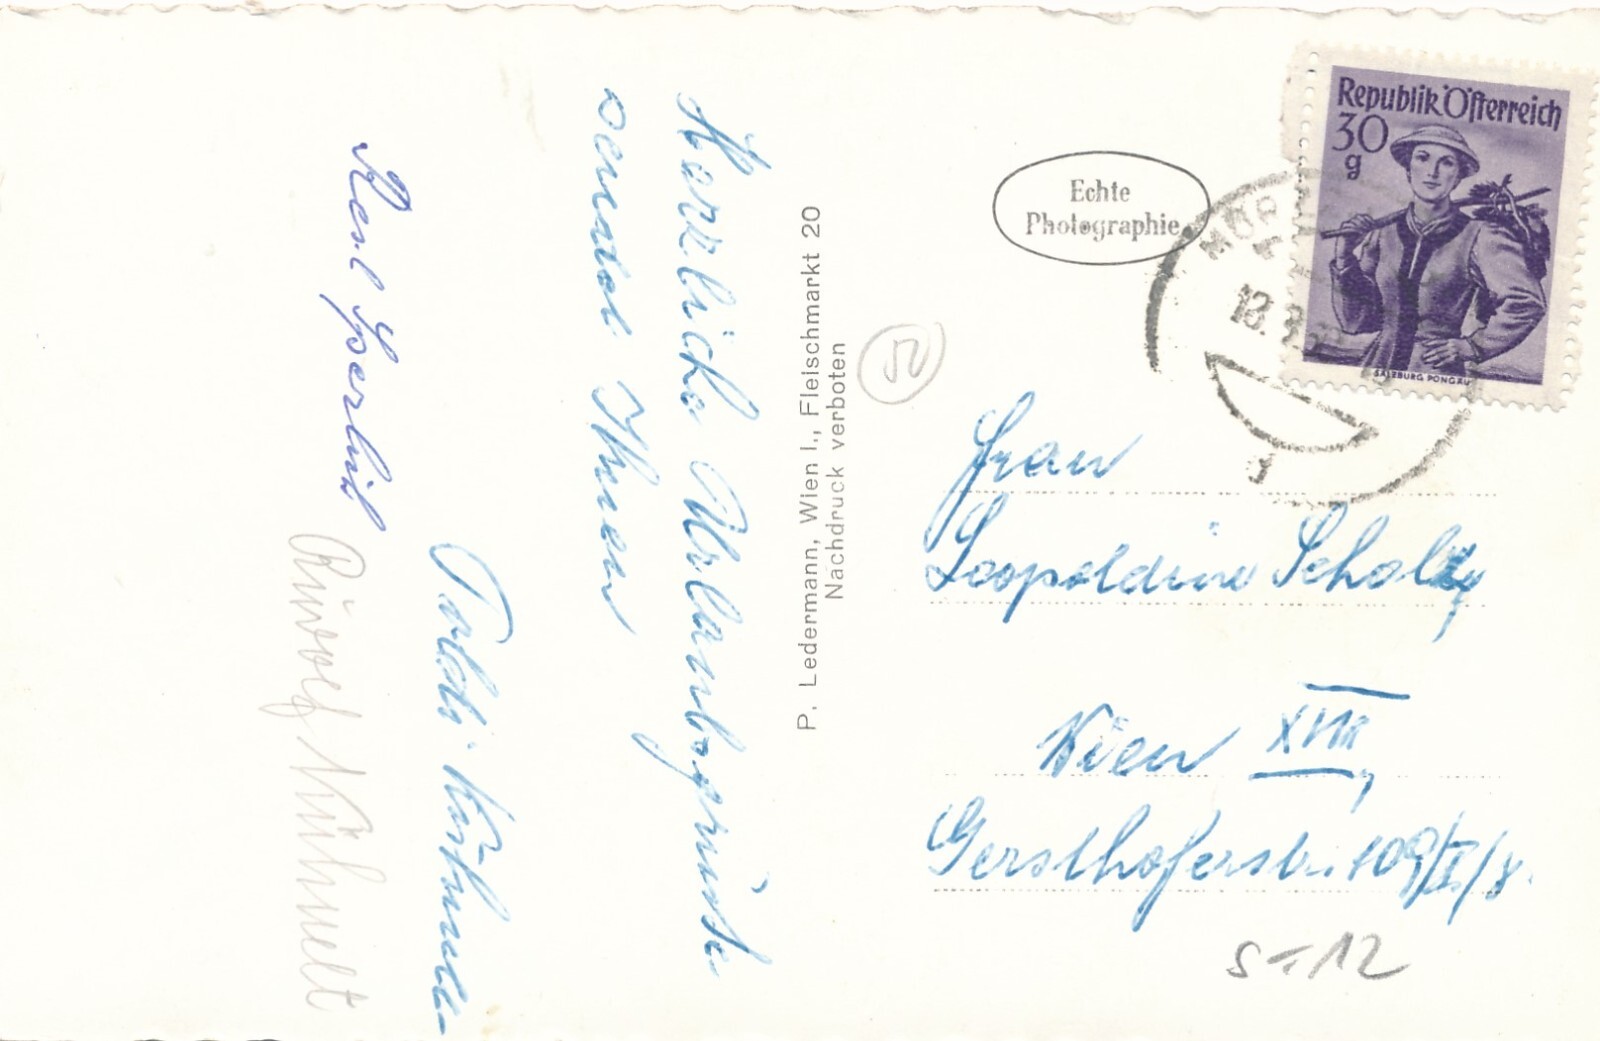 Herzliche Urlaubsgrüße
sendet Ihnen
Poldi
Resl
P. Ledermann, Wien I., Fleischmarkt 20
Nachdruck verboten
Echte
Photographie
Republik Österreich
30
g
SALZBURG PONGAU
18.
50
Frau
Leopoldine
Wien XVIII,
Gersthoferstr. 109/II/8.
S-12